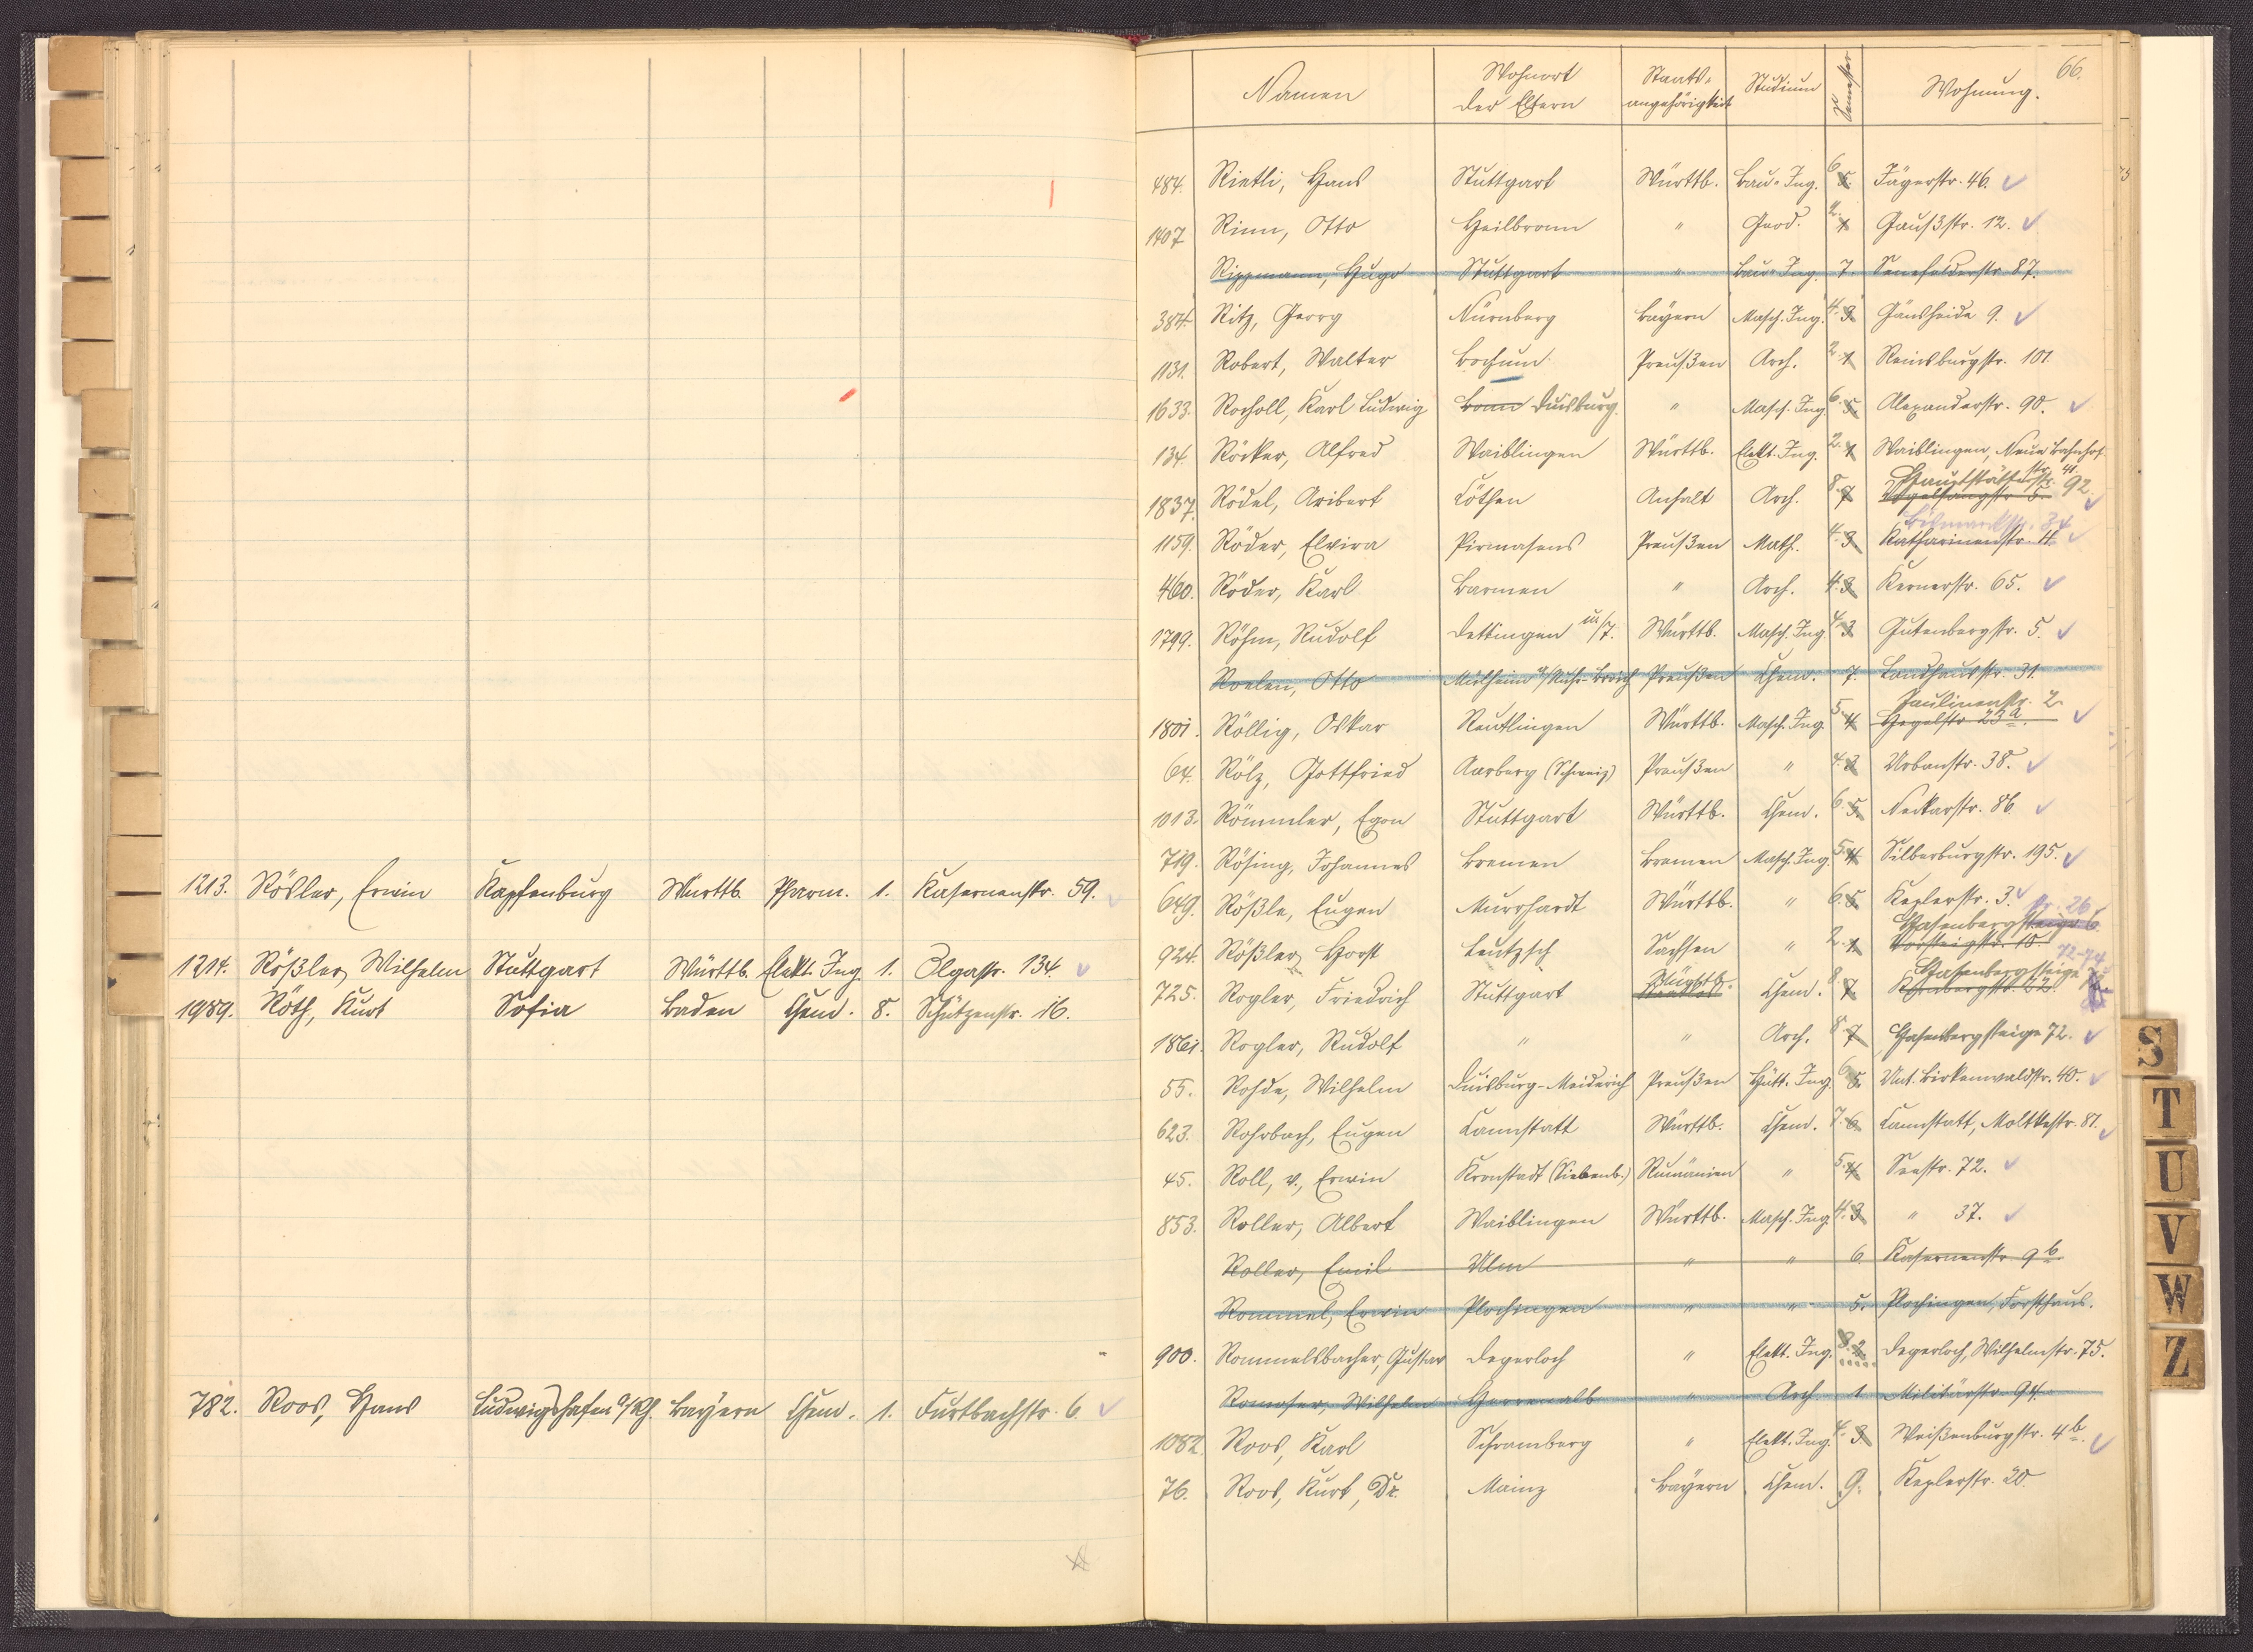 1213. Rösler, Erwin Kapfenburg Württb. Pharm. 1. Kasernenstr. 59.
1214. Rößler, Wilhelm Stuttgart Württb. Elekt. Ing. 1. Olgastr. 134.
1989. Röth, Kurt Sofia Baden Chem. 8. Schützenstr. 16.
782. Roos, Hans Ludwigshafen a/Rh. Bayern Chem. 1. Furtbachstr. 6.
66.
Namen Wohnort der Eltern Staats-angehörigkeit Studium Semester Wohnung.
484. Rietli, Hans Stuttgart Württb. Bau-Ing. 6. 5. Jägerstr. 46.
1407 Rinn, Otto Heilbronn " Geod. 2. 1. Gaußstr. 12.
Rippmann, Hugo Stuttgart " Bau-Ing. 7. Senefelderstr. 87.
384. Ritz, Georg Nürnberg Bayern Masch. Ing. 4. 3. Gänsheide 9.
1131. Robert, Walter Bochum Preußen Arch. 2. 1. Reinsburgstr. 101
1633. Rocholl, Karl Ludwig Bonn Duisburg. " Masch. Ing. 6. 5. Alexanderstr. 90.
134. Röcker, Alfred Waiblingen Württb. Elekt. Ing. 2. 1. Waiblingen, Neue Bahnhofstr. 41.
1837. Rödel, Aribert Cöthen Anhalt Arch. 8. 7. Vogelsangstr. 5. Hauptstätterstr. 92.
1159. Röder, Elvira Pirmasens Preußen Math. 4. 3. Katharinenstr. 4. Bismarckstr. 34
460. Röder, Karl Barmen " Arch. 4. 3. Kernerstr. 65.
1799. Röhm, Rudolf Dettingen u/T. Württb. Masch. Ing. 4. 3. Gutenbergstr. 5.
Roelen, Otto Mülheim a/Ruhr-Broich Preußen Chem. 7. Landhausstr. 31.
1801. Röllig, Oskar Reutlingen Württb. Masch. Ing. 5. 4. Hegelstr. 23a. Paulinenstr. 2.
64. Rölz, Gottfried Aarberg (Schweiz) Preußen " 4. 3. Urbanstr. 38.
1013. Römmler, Egon Stuttgart Württb. Chem. 6. 5. Neckarstr. 86
719. Rösing, Johannes Bremen Bremen Masch. Ing. 5. 4. Silberburgstr. 195.
649. Rößle, Eugen Murrhardt Württb. " 6. 5. Keplerstr. 3.
924. Rößler, Horst Leutzsch Sachsen " 2. 1. Hasenbergsteige 6. 26
725. Rogler, Friedrich Stuttgart Württb. Chem. 8. 7. Hasenbergsteige 72-74
1861. Rogler, Rudolf " " Arch. 8. 7. Hasenbergsteige 72.
55. Rohde, Wilhelm Duisburg-Meiderich Preußen Hütt. Ing. 6. 5. Unt. Birkenwaldstr. 40.
623. Rohrbach, Eugen Cannstatt Württb. Chem. 7. 6. Cannstatt, Moltkestr. 81.
45. Roll, v., Erwin Kronstadt (Siebenb.) Rumänien " 5. 4. Seestr. 72.
853. Roller, Albert Waiblingen Württb. Masch. Ing. 4. 3. " 37.
Roller, Emil Ulm " " 6. Kasernenstr. 9b.
Rommel, Erwin Plochingen " " 5. Plochingen, Forsthaus.
900. Rommelsbacher, Gustav Degerloch " Elekt. Ing. 8. Degerloch, Wilhelmstr. 75.
Romoser, Wilhelm Herrenalb " Arch. 1. Militärstr. 94.
1082 Roos, Karl Schramberg " Elekt. Ing. 4. 3. Weißenburgstr. 4b.
76. Roos, Kurt, Dr. Mainz Bayern Chem. 9. Keplerstr. 20.
S
T
U
V
W
Z